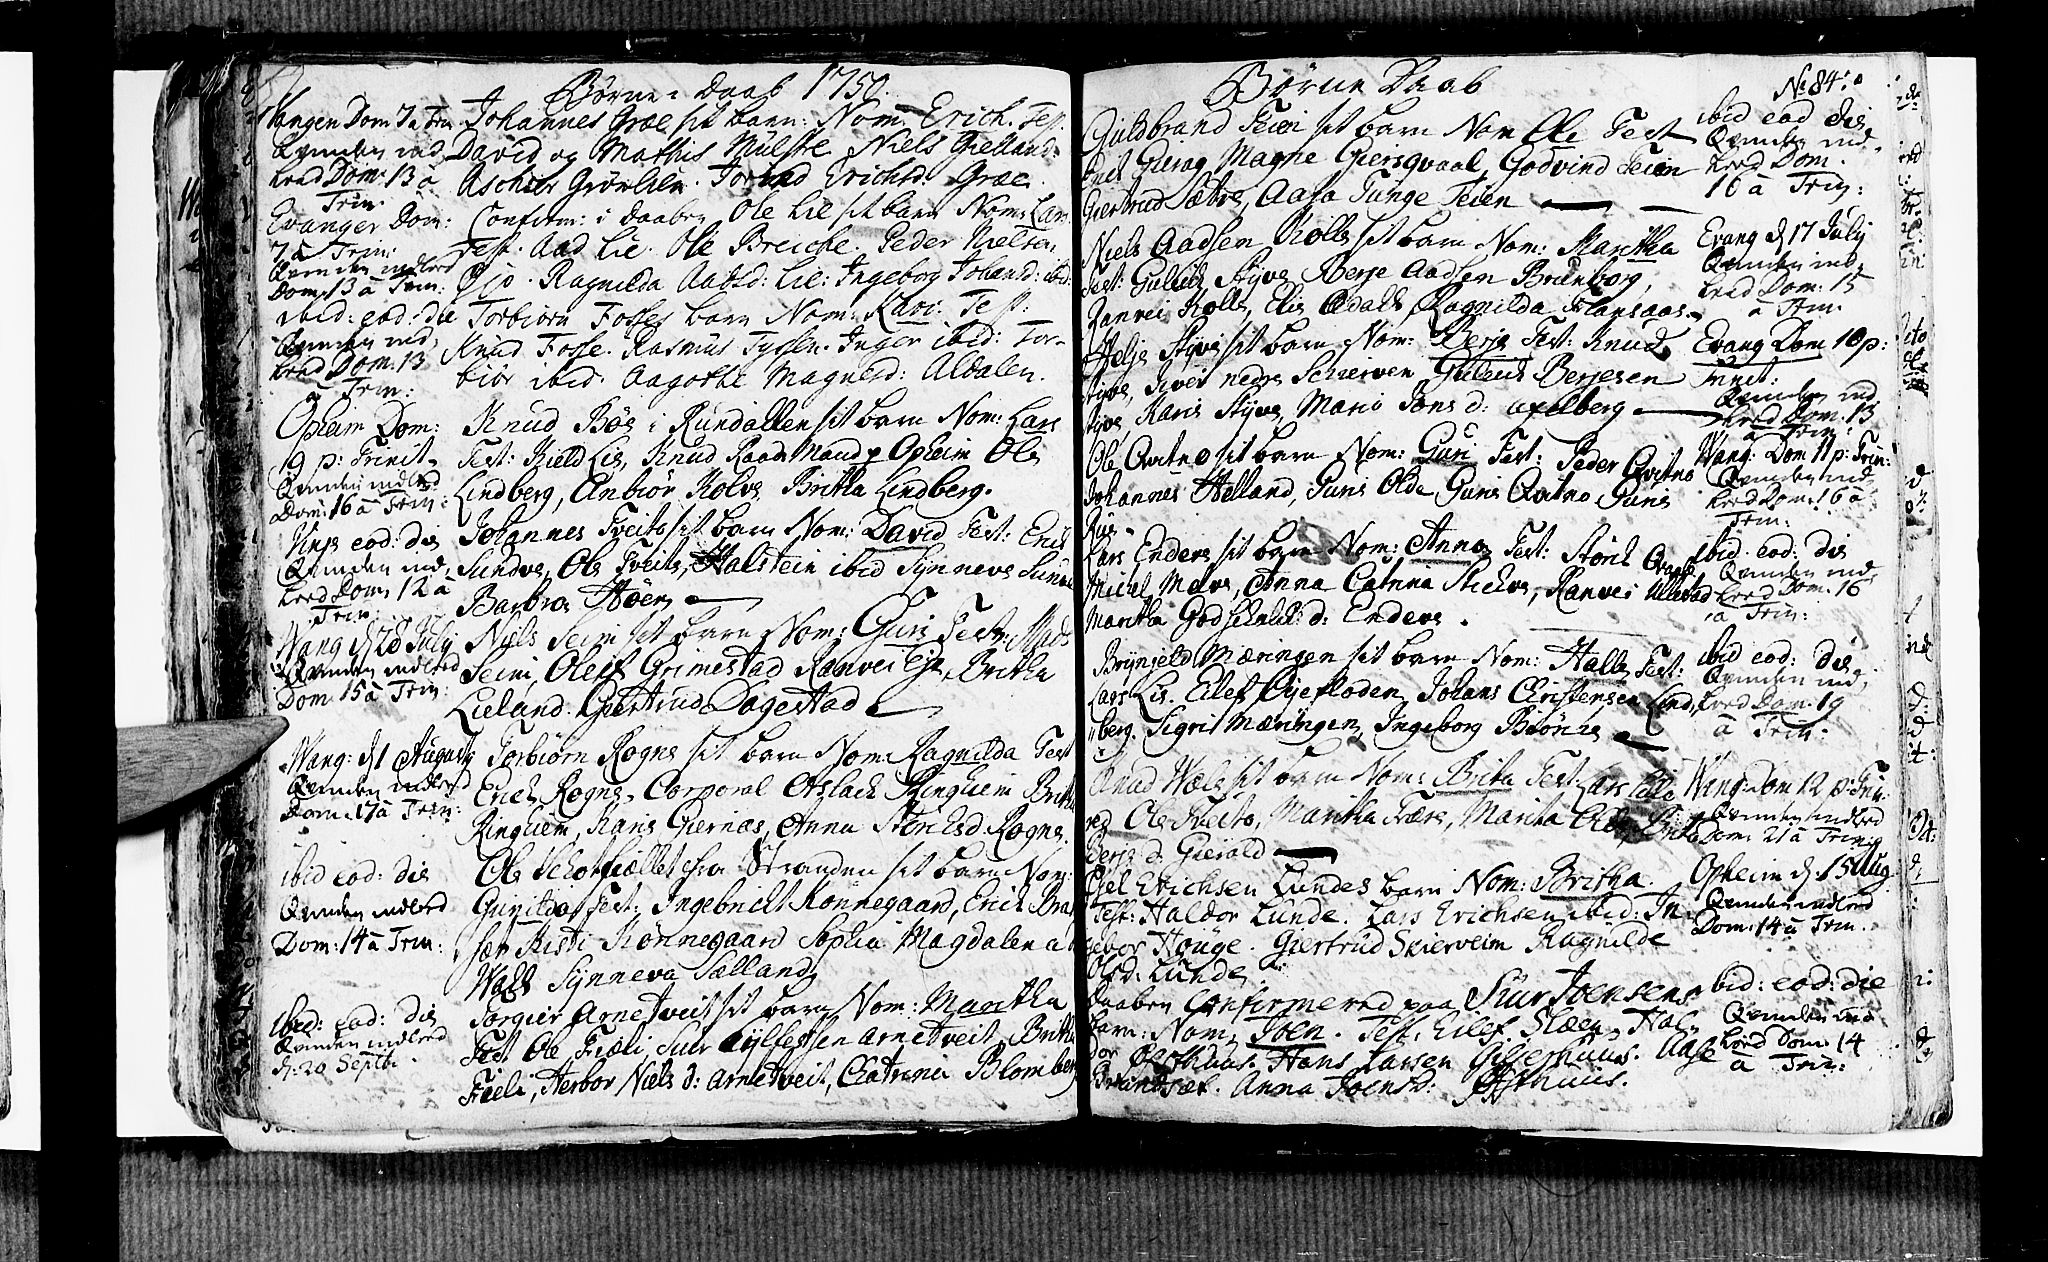 Børne: Daab 1750.
Vangen Dom 7 a Trin.
Qvinden ind,
leed Dom: 13 a
Trin:
Johannes Græe sit barn: Nom: Erich. Tes:
David og Mathis Mülste Niels Gielland:
Aschier Grøvlien. Erichsd: Græe.
Evanger Dom:
7 a Trin:
Qvinden indleed
Dom: 13 a Trin:
Confirm: i daaben Ole Lie sit barn Nom: Lars
Test: Aad Lie. Ole Breiche. Peder Nielsen
Ragnilda Aadsd: Lie: Ingeborg Johansd: ibid:
ibid: eod: die
Qvinden ind,
leed Dom: 13
a Trin:
Torbiørn Fosses barn Nom: Kari. Test:
Knud Fosse. Rasmus Tyssen. Inger ibid: Tor-
biør ibid. Aagothe Magnesd: Aldalen.
Opheim Dom:
9 p: Trinit.
Qvinden indleed
Dom: 16 a Trin:
Knud Bøe i Rundallen sit barn Nom: Lars
Test: Kield Lie, Knud Raad Mand p Opheim Ole
Lindberg, Anbiør Kolve Britha Lindberg.
Vinje eod: die
Qvinden ind,
leed Dom: 12 a
Trin:
Johannes Tveite sit barn Nom: David Test: Erich
Sundve, Ole Tveite, Halstein ibid Synneve Sundve
Barbroe Høen
Wang d 28 July
Qvinden indleed
Dom 15 a Trin:
Niels Seim sit barn Nom: Guri Test: Mads
Seim, Oleif Grimestad Ranvei Eje, Britha
Lieland. Giertrud Dagestad
Wang: d 1 Augusty
Qvinden indleed
Dom: 17 a Trin:
Torbiørn Rogne sit barn Nom: Ragnilda Test
Erich Rogne, Corporal Aslach Ringheim Britha
Ringheim, Karis Giernæs, Anna Rogne.
ibid eod: die
Qvinden indleed
Dom: 14 a Trin:
Ole Schorfiellet fra Stranden sit barn Nom:
Gunilda, Test: Ingebricht Rønnegaard, Erich
Kisti Rønnegaard Sophia Magdalena
Synneva Sælland
ibid: eod: die
Qvinden indleed
d: 20 Septbi
Torgier Arnetveit sit barn Nom: Maritha
Test Ole Fieli, Siur Arnetveit, Britha
Fieli, Herbor Niels d: Arnetveit, Catrina Blomberg
Børne Daab
No 84:
Guldbrand Teien sit barn Nom Ole Test
Magne Giersqvaal, Godvind Teien
Giertrud Sætre, Aasa Tunge Teien
ibid eod die
Qvinden ind,
leed Dom.
16 a Trin:
Niels Aadsen Kolle sit barn Nom: Maritha
Test: Gulleich Styve Berje Aadsen Brunborg,
Ranvei Kolle, Elis Ædals, Ragnilda Horsaas
Evang d 17 July
Qvinden ind,
leed Dom: 15
a Trin
Helje Styve sit barn Nom: Berje Test: Knud
Styve, Siver nedre Schierven Gulleich Berjesen
Styve, Karis Styve, Maris Jons d:
Evang Dom 10 p:
Trinit:
Qvinden ind
leed Dom: 13
a Trin:
Ole Qvitno sit barn Nom: Guri Test: Peder Qvitno
Johannes Helland, Guris Olde Guris Qvitno Guris
Riis
Wang: Dom 11 p: Trin:
Qvinden ind,
leed Dom: 16 a
Trin:
Lars Endeve sit barn Nom: Anna Test: Størck
Michel Melve, Anna Catrina Skielve, Ranvei Ullestad
Maritha Godschalck d: Endeve.
ibid eod: die
Qvinden ind,
leed Dom 16
a Trin:
Brynjeld Mæringen sit barn Nom: Halle Test:
Lars Lie. Eilef Øyefloden, Johans Christensen Lind,
berg. Sigri Mæringen, Ingeborg Biørke
ibid eod: die
Qvinden ind,
leed Dom: 19
a Trin:
Knud Wæle sit barn Nom: Brita Test: Lars
Ole Tveito, Maritha Træe, Marita Brita
Berje d. Gierald
Wang: Dom 12 p: Tri:
Qvinden indleed
Dom: 21 a Trin:
Erichsen Lundes barn Nom: Britha.
Test: Haldor Lunde. Lars Erichsen ibid: In-
gebor Houge. Giertrud Skierveim Ragnilde
Olsd: Lunde.
Opheim d. 15 Aug
Qvinden indleed
Dom: 14 a Trin.
Daaben Confirmered paa Siur Joensens
barn: Nom: Joen. Test: Eilef. Slæen, Hal-
dor Østhuus. Hans Larsen Gilleshuus. Aase
Brandsæt. Anna Joensd: Østhuus.
ibid: eod: die
Qvinden ind
leed Dom: 14
a Trin: